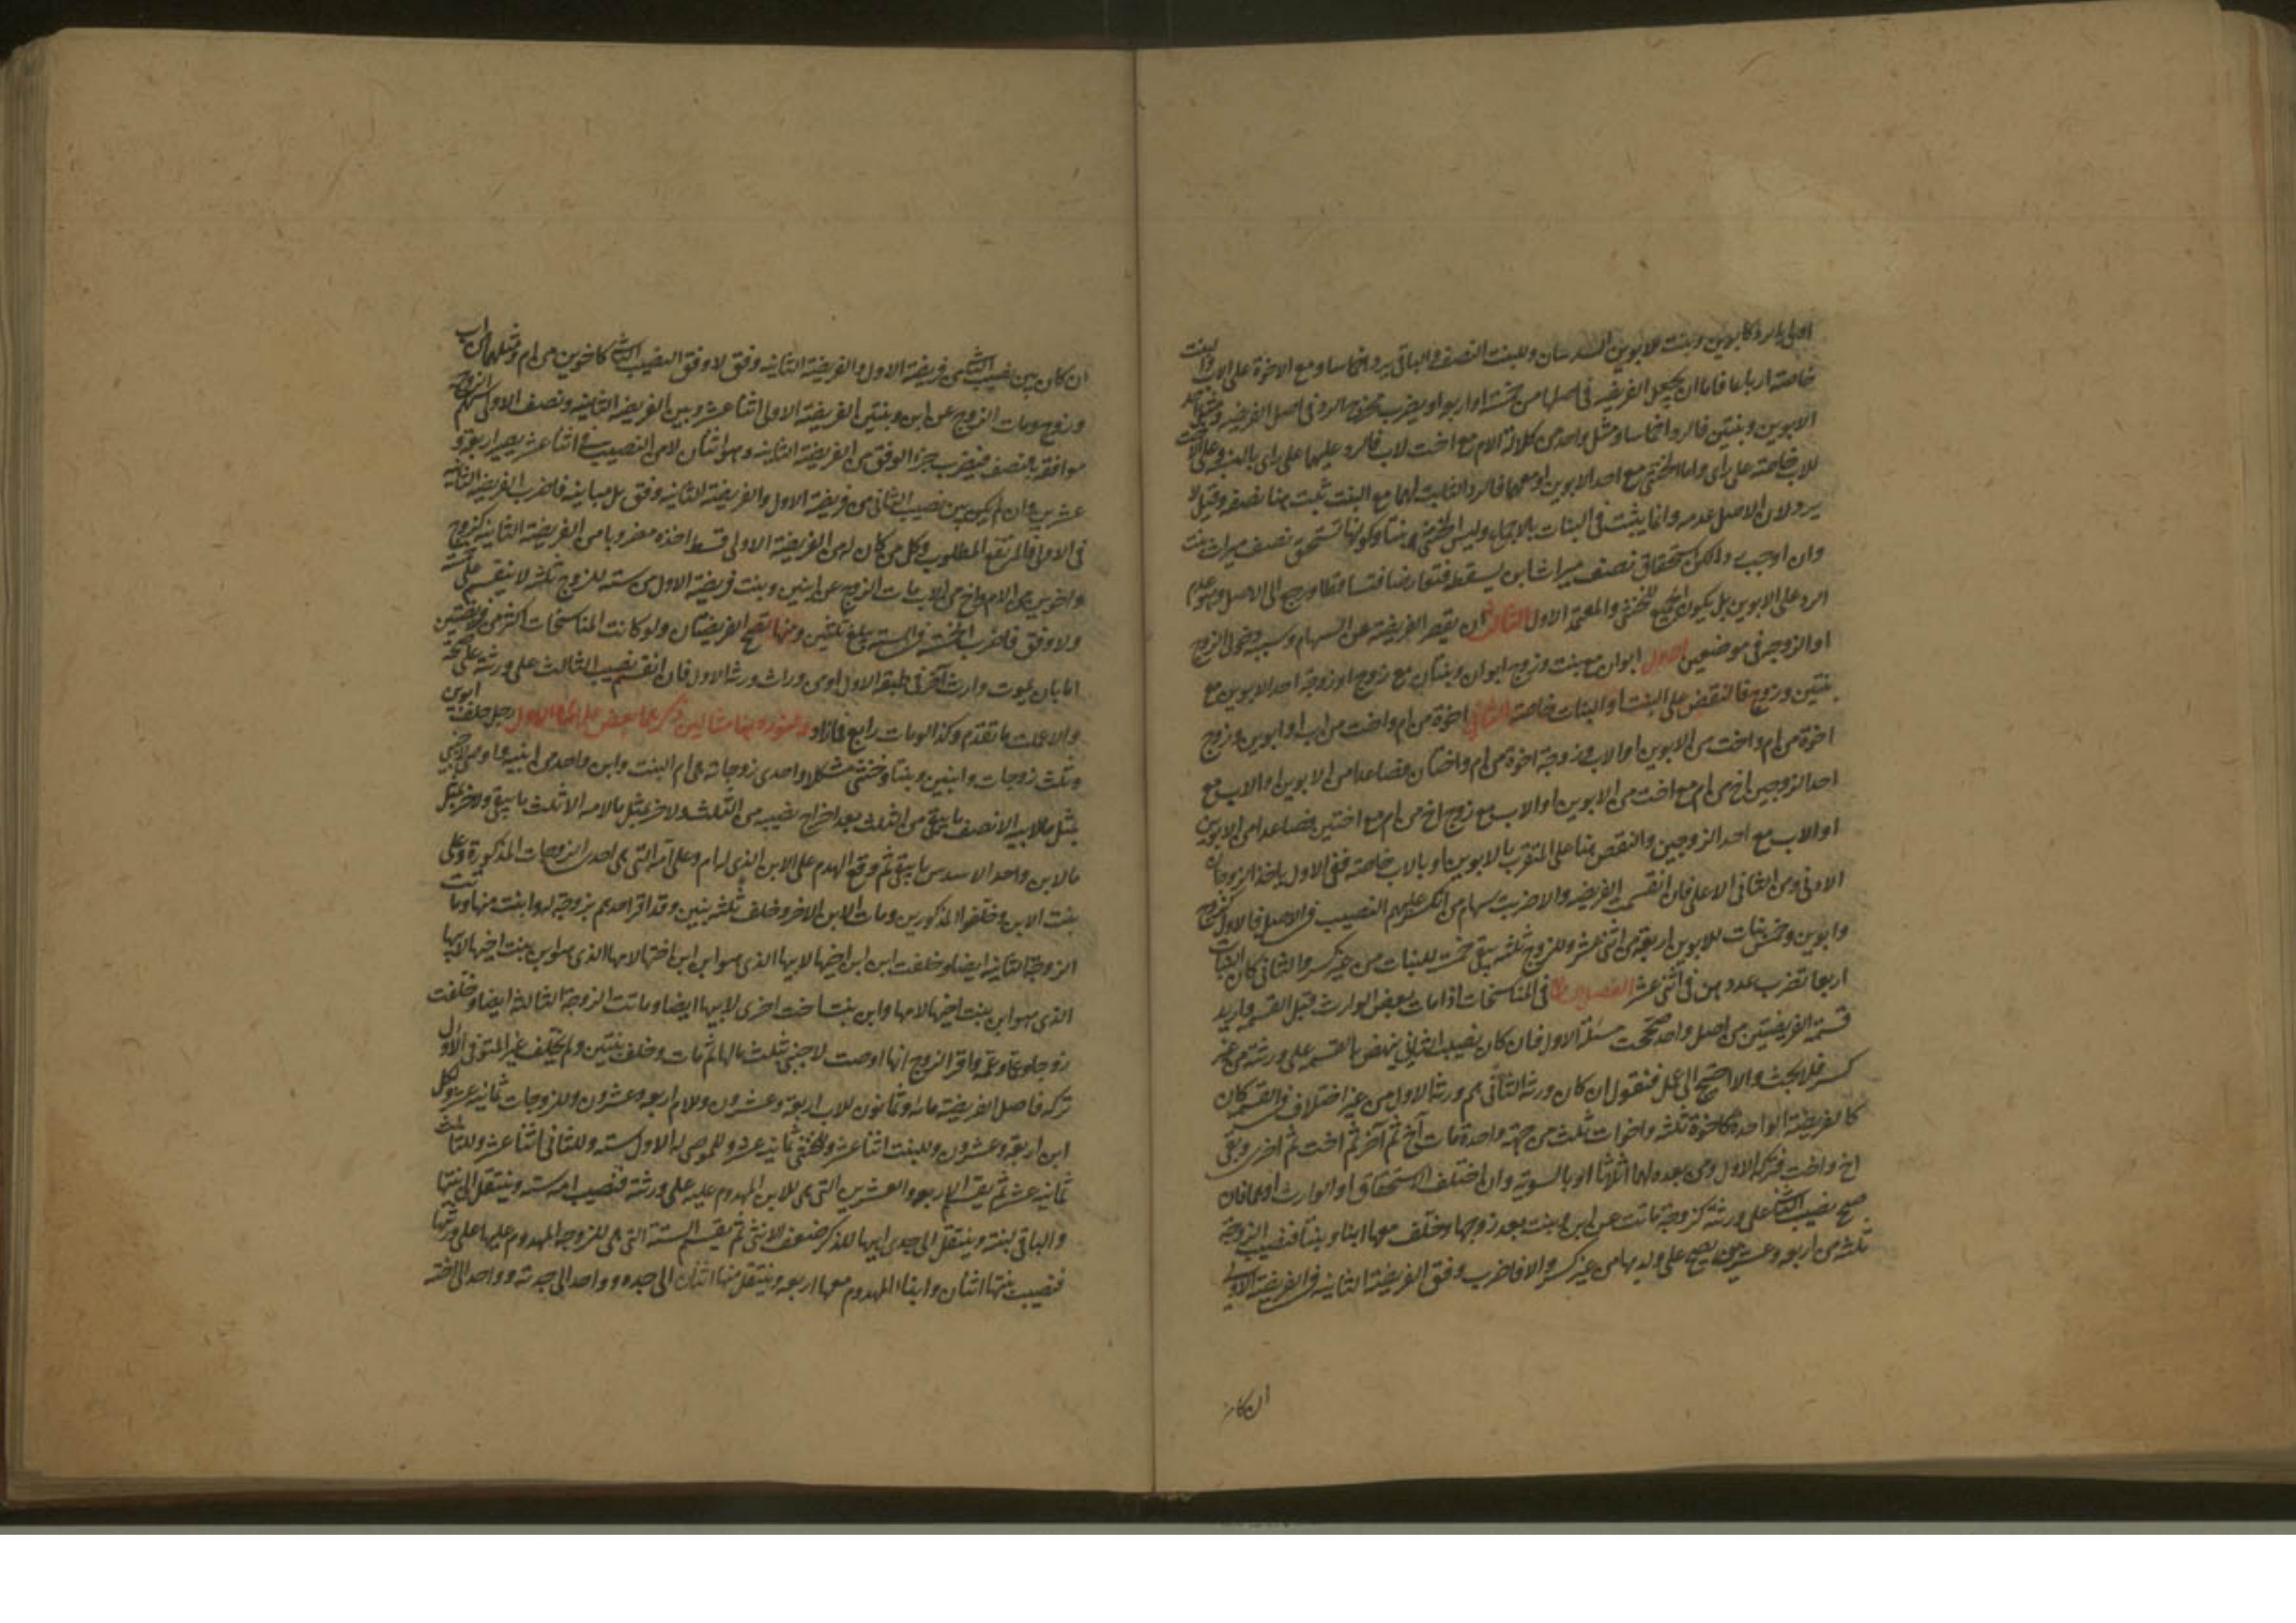 اولى بالرد كابوين وبنت للابوين السدسان وللبنت النصف والباقي يرد اخماسا ومع الاخوة على الاب والبنت
خاصة ارباعا فاما ان يجعل الفريضة في اصلها من خمسة او اربعة او يضرب مخرج الرد في اصل الفريضة ومثل احد
الابوين وبنتين فالرد اخماسا ومثل واحد من كلالة الام مع اخت لاب فالرد عليهما على راى بالنسبة وعلى الاخت
للاب خاصة على راى واما الخنثى مع احد الابوين او معهما فالرد الثابت لهما مع البنت ثبت هنا نصفه وقيل لا
يرد لان الاصل عدمه وانما يثبت في البنات بالاجماع وليس الخنثى بنتا وكونها تستحق نصف ميراث بنت
وان اوجب ردا لكن استحقاق نصف ميراث ابن يسقطه فتعارضا فتساقطا ورجع الى الاصل وهو عدم
الرد على الابوين بل يكون الجميع للخنثى والمعتمد الاول الثالث ان يقصر الفريضة عن السهام وسببه دخول الزوج
او الزوجة في موضعين الاول ابوان مع بنت وزوج ابوان وبنتان مع زوج او زوجة احد الابوين مع
بنتين وزوج فالنقص على البنت او البنات خاصة الثاني اخوة من ام واخت من اب او ابوين وزوج
اخوة من ام واخت من الابوين او الاب وزوجة اخوة من ام واختان فصاعدا من الابوين او الاب مع
احد الزوجين اخ من ام مع اخت من الابوين او الاب مع زوج اخ من ام مع اختين فصاعدا من الابوين
او الاب مع احد الزوجين والنقص هنا على المتقرب بالابوين او بالاب خاصة ففي الاول ياخذ الزوجان
الادنى وفي الثاني الاعلى فان انقسمت الفريضة والا ضربت سهام من انكسر عليهم النصيب في الاصل فالاول كزوج
وابوين وخمس بنات للابوين اربعة من اثنى عشر وللزوج ثلثة يبقى خمسة للبنات من غير كسر والثاني كان البنات
اربعا تضرب عددهن في اثنى عشر الفصل في المناسخات اذا مات بعض الوارث قبل القسمة واريد
قسمة الفريضتين من اصل واحد صححت مسئلة الاول فان كان نصيب الثاني ينهض بالقسمة على ورثته من غير
كسر فلا بحث والا احتيج الى عمل فنقول ان كان ورثة الثاني هم ورثة الاول من غير اختلاف في القسمة كان
كالفريضة الواحدة كاخوة ثلثة واخوات ثلث من جهة واحدة مات اخ ثم آخر ثم اخت ثم اخرى وبقى
اخ واخت فتركة الاول ومن بعده لهما اثلاثا او بالسوية وان اختلف الاستحقاق او الوارث او هما فان
صح نصيب الثاني على ورثته كزوجة ماتت عن ابن وبنت بعد زوجها وخلف معها ابنا وبنتا فنصيب الزوجة
ثلثة من اربعة وعشرين يصح على ولديها من غير كسر والا فاضرب وفق الفريضة الثانية في الفريضة الاولى
ان كان
ان كان بين نصيب الثاني من فريضة الاول والفريضة الثانية وفق لا وفق النصيب الثاني كاخوين من ام ومثلهما من اب
وزوج ومات الزوج عن ابن وبنتين الفريضة الاولى اثنا عشر وبين الفريضة الثانية ونصف الاولى سهم الزوج
موافقة بالنصف فيضرب جزء الوفق من الفريضة الثانية وهو اثنان لا من النصيب في اثنا عشر يصير اربعة و
عشرين وان لم يكن بين نصيب الثاني من فريضة الاول والفريضة الثانية وفق بل مباينة فاضرب الفريضة الثانية
في الاولى فالمرتفع المطلوب وكل من كان له من الفريضة الاولى قسط اخذه مضروبا من الفريضة الثانية كزوج
واخوين من الام واخ من الاب مات الزوج عن ابنين وبنت فريضة الاول من ستة للزوج ثلثة لا ينقسم على خمسة
ولا وفق فاضرب الخمسة في الستة يبلغ ثلثين ومنها تصح الفريضتان ولو كانت المناسخات اكثر من فريضتين
اما بان يموت وارث آخر في طبقة الاول او من وراث ورثة الاول فان انقسم نصيب الثالث على ورثته على صحة
والا عملت ما تقدم وكذا لو مات رابع فما زاد ولنورد هنا مثالين الاول رجل خلف ابوين
وثلث زوجات وابنين وبنتا وخنثى مشكلا واحدى زوجاته هي ام البنت وابن واحد من ابنيه واوصى لاجنبي
بمثل ما لابيه الا نصف ما يبقى من الثلث بعد اخراج نصيبه من الثلث ولاخر بمثل ما لامه الا ثلث ما يبقى ولاخر بمثل
ما لابن واحد الا سدس ما يبقى ثم وقع الهدم على الابن الذي له ام وعلى امه التي هي احدى الزوجات المذكورة وعلى
بنت الابن وخلفوا المذكورين ومات الابن الاخر وخلف ثلثة بنين وقد اقر احدهم بزوجة له وابنت منها وماتت
الزوجة الثانية ايضا وخلفت ابن ابن اخيها لابيها الذي هو ابن ابن اختها لامها الذي هو ابن بنت اخيها لابيها
الذي هو ابن بنت اخيها لامها وابن بنت اخت اخرى لابيها ايضا وماتت الزوجة الثالثة ايضا وخلفت
زوجا وعما وعمة واقر الزوج انها اوصت لاجنبي بثلث مالها ثم مات وخلف بنتين ولم يخلف غير المتوفى الاول
تركة فاصل الفريضة مائة وثمانون للاب اربعة وعشرون وللام اربعة وعشرون وللزوجات ثمانية عشر ولكل
ابن اربعة وعشرون وللبنت اثنا عشر وللخنثى ثمانية عشر وللموصى له الاول ستة وللثاني اثنا عشر وللثالث
ثمانية عشر ثم يقسم الاربعة والعشرين التي هي للابن المهدوم عليه على ورثته فنصيب امه ستة وينتقل الى بنتها
والباقي لبنته وينتقل الى جدى ابيها للذكر ضعف الانثى ثم يقسم الستة التي هي للزوجة المهدوم عليها على ورثتها
فنصيب بنتها اثنان وابنها المهدوم معها اربعة وينتقل منها اثنان الى جده وواحد الى جدته وواحد الى اخته